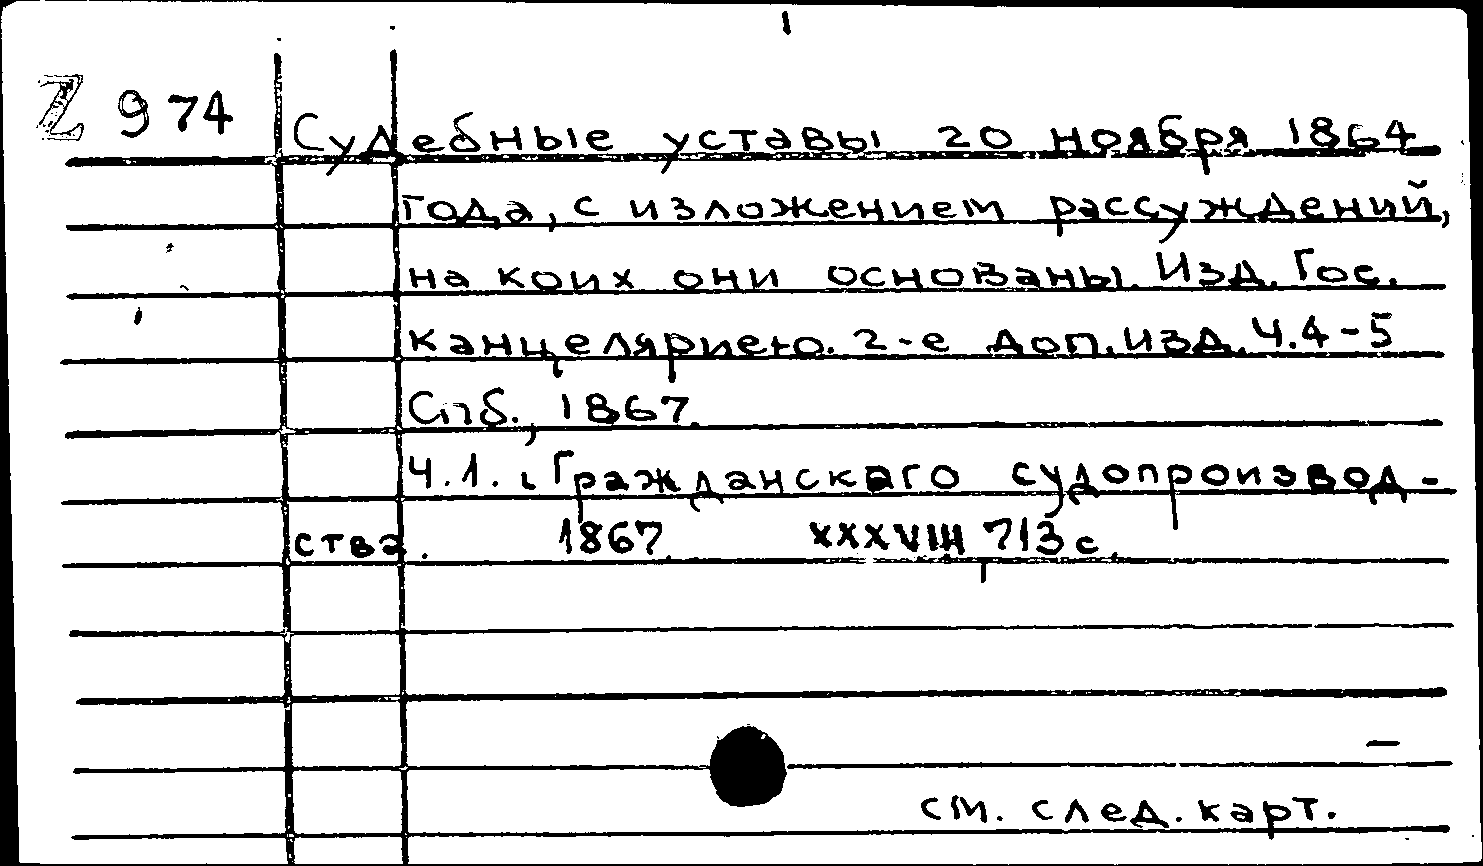 Z 974
Судебные уставы 20 ноября 1864
года, с изложением рассуждений,
на коих они основаны. Изд. Гос.
канцеляриею. 2-е доп. изд. Ч. 4-5
Спб., 1867.
Ч. 1. Гражданскаго судопроизвод-
ства. 1867. XXXVIII, 713 с.
см. след. карт.